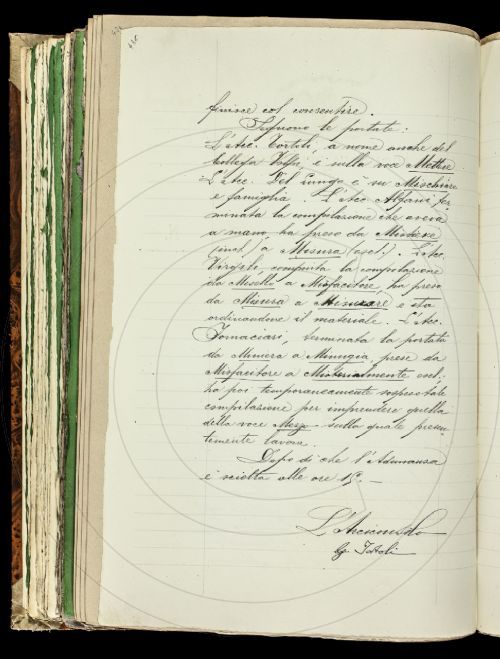 finisce col consentire.
Seguono le portate:
L'Acc. Tortoli, a nome anche del
Collega Volpi, è sulla voce Mettere.
L'Acc. Del Lungo è su Mischiare
e famiglia. L'Acc. Alfani, ter-
minata la compilazione che aveva
a mano, ha preso da
a Misura (escl.). L'Acc.
Virgili, compiuta la compilazione
da a Misfacitore, ha preso
da Misura a Misurare e sta
ordinandone il materiale. L'Acc.
Fornaciari, terminata la portata
da Miniera a Minugia, prese da
Misfacitore a Misterialmente escl.
ha poi temporaneamente sospesa tale
compilazione per imprendere quella
della voce sulla quale presen-
temente lavora.
Dopo di che l'Adunanza
è sciolta alle ore 15. —
L'Arciconsolo
G. Tortoli